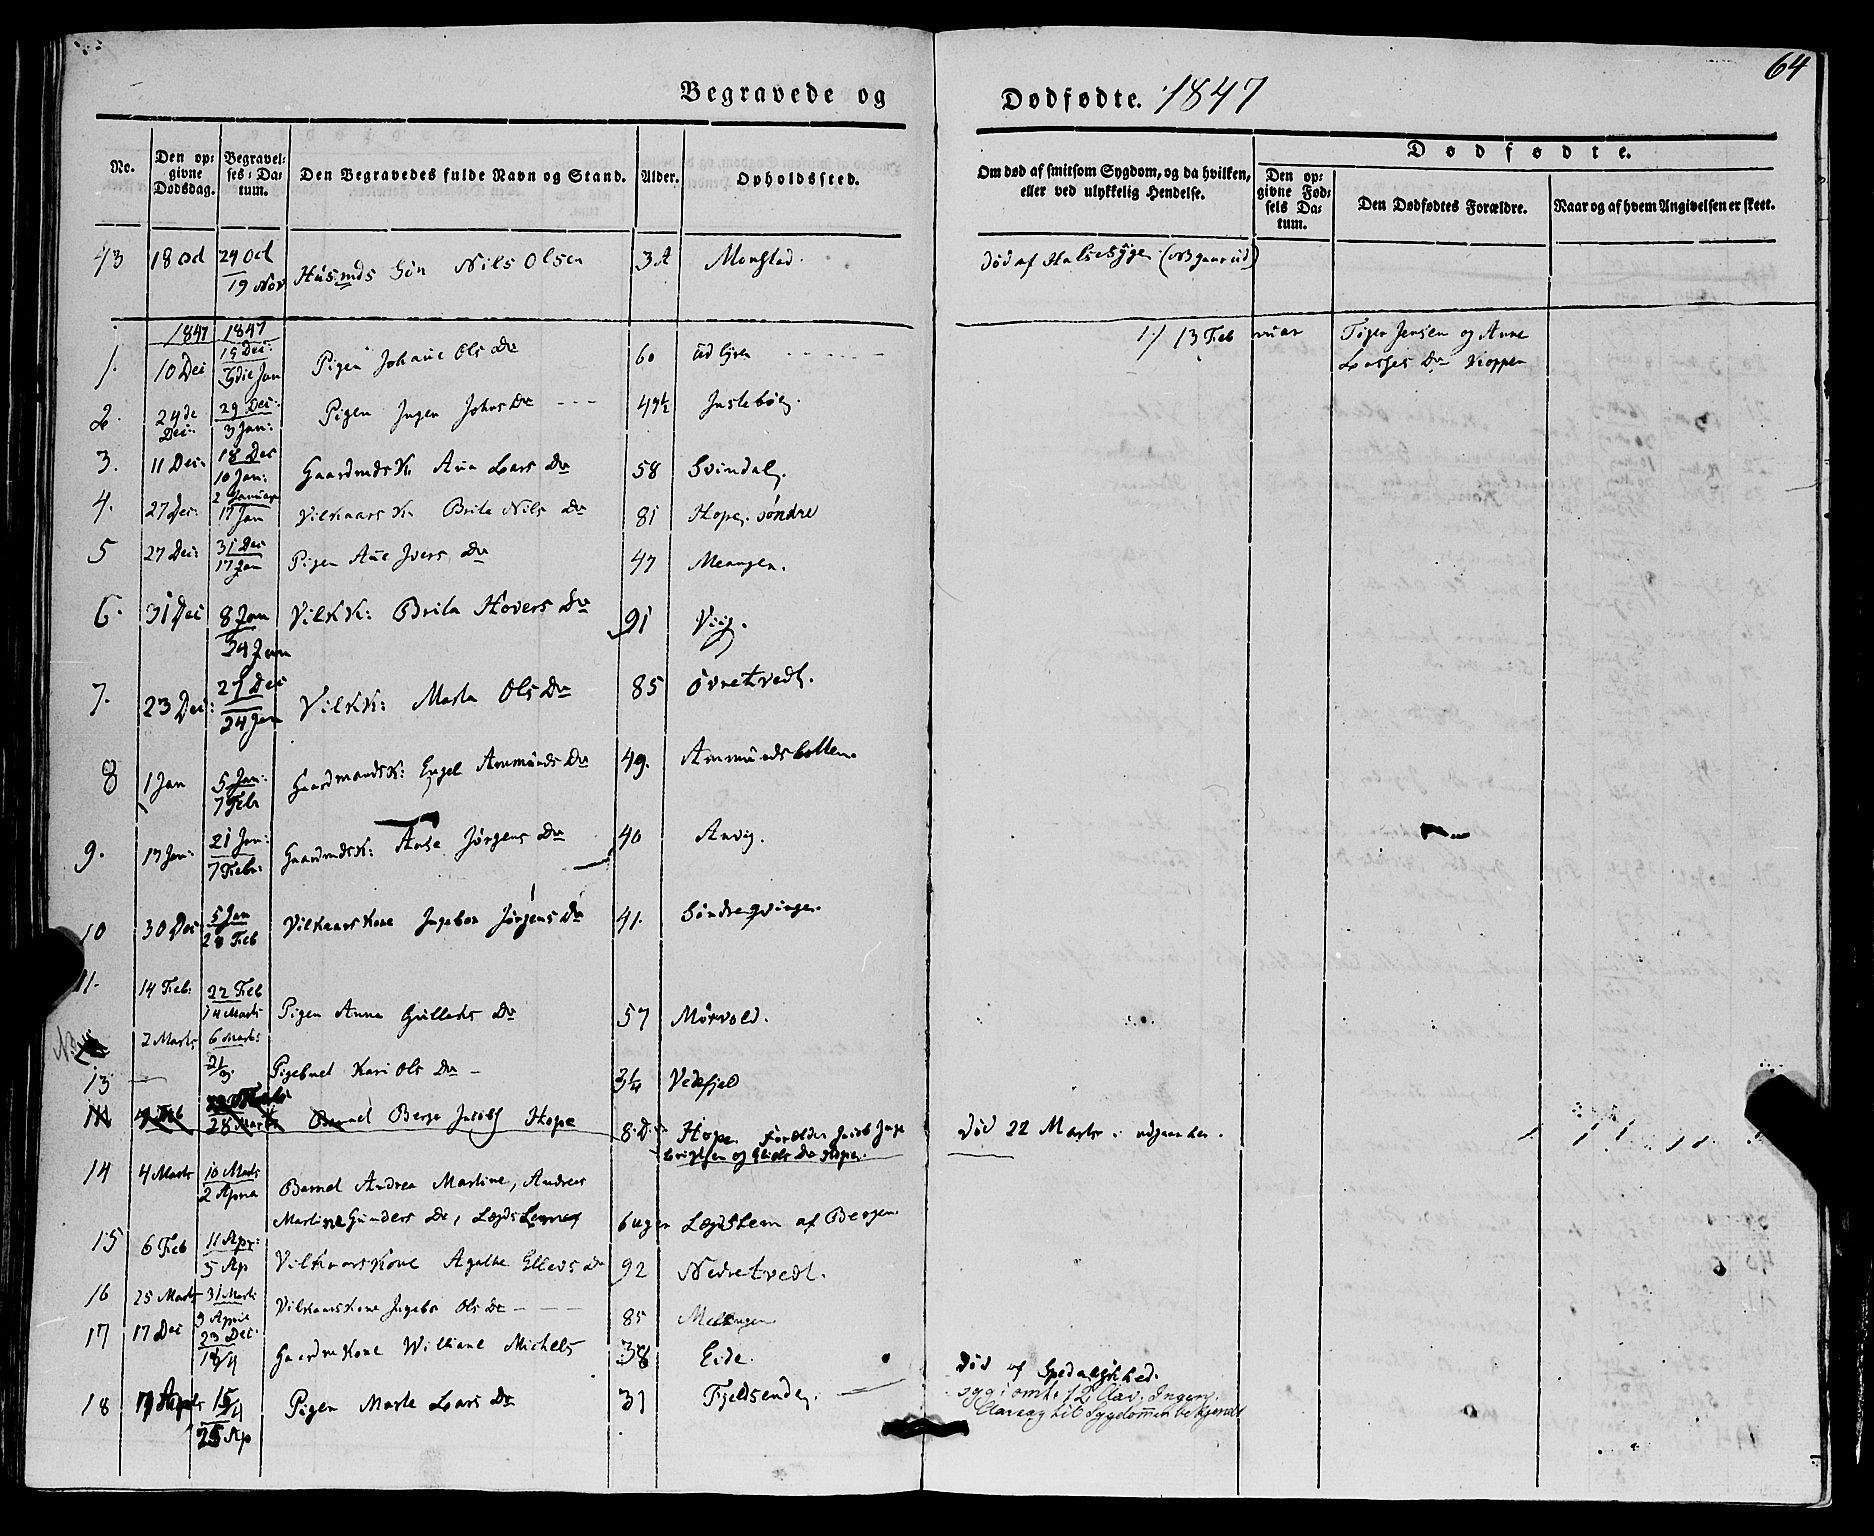 64
Begravede og Dødfødte. 1847
No.
Den op= givne Dødsdag.
Begravel= ses=Da= tum.
Den Begravedes fulde Navn og Stand.
Alder.
Opholdssted.
Om død af smitsom Sygdom, og da hvilken, eller ved ulykkelig Hendelse.
Dødfødte.
Den op= givne Fød= sels Da= tum.
Den Dødfødtes Forældre.
Naar og af hvem Angivelsen er skeet.
43 18 Oct 24 Oct 19 Nov Husmds Søn Nils Olsen 3 A Monstad. Død af Halsesyge
1847 1847
1. 10 Dec 15 Dec: 3die Jan Pigen Johane Ols Dr 60
1.) 13 Feb Jensen og Anne
Lasses Dr Koppen
2. 24de Dec: 29 Dec: 3 Jan: Pigen Ingen Johns Dr 49½
3. 11 Dec: 18 Dec 10 Jan: Gaardmds K. Ana Lars Dr 58 Svindal.
4. 27 Dec: 2 Januar 17 Jan Vilkaars K. Brita Nils Dr 81 Hope. søndre
5 27 Dec: 31 Dec 17 Jan Pigen Ane Ivers Dr 47 Meangen.
6. 31 Dec 8 Jan 24 Jan Vilk K: Brita Hovers Dr 91 Viig.
7. 23 Dec: 27 Dec 24 Jan Vilk K: Marta Ols Dr 85 Øvretvedt.
8 1 Jan 5 Jan: 7 Febr Gaardmands K: Engel Ammunds Dr 49. Ammundsbotten.
9. 17 Jan: 21 Jan: 7 Febr: Gaardmds K: Jørgens Dr 40 Arvig.
10 30 Dec 5 Jan 28 Feb Vilkaars Kone Ingebor Jørgens Dr 41. Søndreqvinge.
11. 14 Feb: 22 Feb 14 Marts Pigen Anna Gulleks Dr 57 Mørvold.
2 Marts 6 Marts
13 21/3 Pigebnet Kari Ols Dr 3¼ Vedefjeld
14 Feb 28 Marts Barnet Berge Jacobs Hope 8. D. Hope. Forældre Jacob Inge
brigtsen og Dr Hope. Død 22 Marts
14 4 Marts 10 Marts 2 Barnet Andrea Martine, Andreas
Martine Gunders Dr, Lægds 6 uger Lægdslem af Bergen.
15 6 Feb 11 Apr: 5 Ap Vilkaars Kone Agathe Ellevs Dr 92 Nedretvedt.
16 25 Marts 31 Marts 9 April Vilkaars Kone Ingebr Ols Dr 85
17 17 Dec 23 Dec: 18/4 Gaardm Kone Williane Michels 38 Eide. Død af Spedalskhed.
18 15/4 25 Ap Pigen Marte Lars Dr 31 Fjeldsende. syg i omtr 12 Aar. Ingen
Aarsag til Sygdommen bekjendt